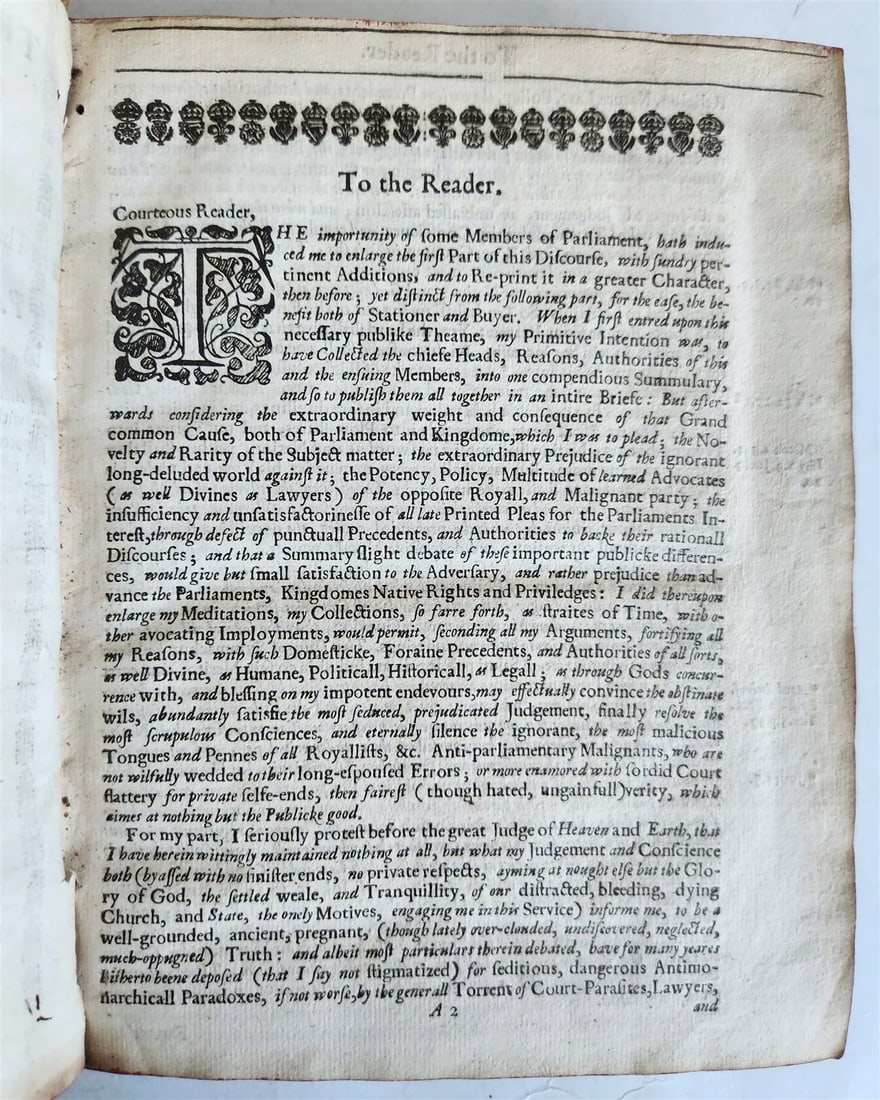 To the Reader.
Courteous Reader,
THE importunity of ſome Members of Parliament, hath indu-
ced me to enlarge the firſt Part of this Diſcourſe, with ſundry per-
tinent Additions, and to Re-print it in a greater Character,
then before; yet diſtinct from the following part, for the eaſe, the be-
nefit both of Stationer and Buyer. When I firſt entred upon this
neceſſary publike Theame, my Primitive Intention was, to
have Collected the chiefe Heads, Reaſons, Authorities of this
and the enſuing Members, into one compendious Summulary,
and ſo to publiſh them all together in an intire Briefe: But after-
wards conſidering the extraordinary weight and conſequence of that Grand
common Cauſe, both of Parliament and Kingdome, which I was to plead; the No-
velty and Rarity of the Subject matter; the extraordinary Prejudice of the ignorant
long-deluded world againſt it; the Potency, Policy, Multitude of learned Advocates
(as well Divines as Lawyers) of the oppoſite Royall, and Malignant party; the
inſufficiency and unſatisfactorineſſe of all late Printed Pleas for the Parliaments In-
tereſt, through defect of punctuall Precedents, and Authorities to backe their rationall
Diſcourſes; and that a Summary ſlight debate of theſe important publicke differen-
ces, would give but ſmall ſatisfaction to the Adverſary, and rather prejudice than ad-
vance the Parliaments, Kingdomes Native Rights and Priviledges: I did thereupon
enlarge my Meditations, my Collections, ſo farre forth, as ſtraites of Time, with o-
ther avocating Imployments, would permit, ſeconding all my Arguments, fortifying all
my Reaſons, with ſuch Domeſticke, Foraine Precedents, and Authorities of all ſorts,
as well Divine, as Humane, Politicall, Hiſtoricall, as Legall; as through Gods concur-
rence with, and bleſſing on my impotent endevours, may effectually convince the obſtinate
wils, abundantly ſatisfie the moſt ſeduced, prejudicated Judgement, finally reſolve the
moſt ſcrupulous Conſciences, and eternally ſilence the ignorant, the moſt malicious
Tongues and Pennes of all Royalliſts, &c. Anti-parliamentary Malignants, who are
not wilfully wedded to their long-eſpouſed Errors; or more enamored with ſordid Court
flattery for private ſelfe-ends, then faireſt (though hated, ungainfull) verity, which
aimes at nothing but the Publicke good.
For my part, I ſeriouſly proteſt before the great Judge of Heaven and Earth, that
I have herein wittingly maintained nothing at all, but what my Judgement and Conſcience
both (byaſſed with no ſiniſter ends, no private reſpects, ayming at nought elſe but the Glo-
ry of God, the ſettled weale, and Tranquillity, of our diſtracted, bleeding, dying
Church, and State, the onely Motives, engaging me in this Service) informe me, to be a
well-grounded, ancient, pregnant, (though lately over-clouded, undiſcovered, neglected,
much-oppugned) Truth: and albeit moſt particulars therein debated, have for many yeares
hitherto beene depoſed (that I ſay not ſtigmatized) for ſeditious, dangerous Antimo-
narchicall Paradoxes, if not worſe, by the generall Torrent of Court-Paraſites, Lawyers,
A 2
and